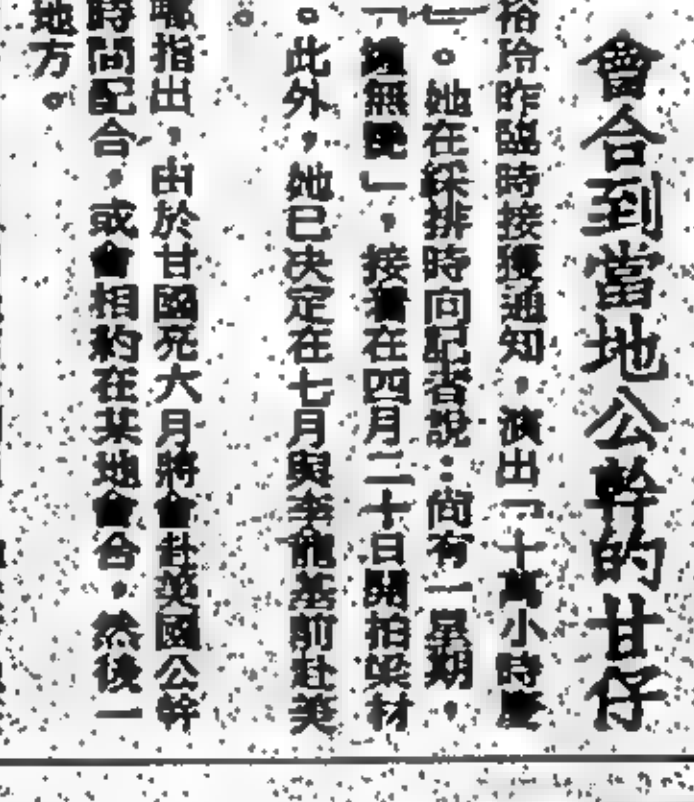 會合到當地公幹的甘仔
裕玲昨臨時接獲通知，演出「十萬小時慶
」。她在綵排時向記者說：尚有一星期，
「遮無晚」，接着在四月二十日開拍梁材
。此外，她已決定在七月與李龍基前赴英
。
聯指出，由於甘國亮六月將會赴英國公幹
時間配合，或會相約在某地會合，然後一
地方。